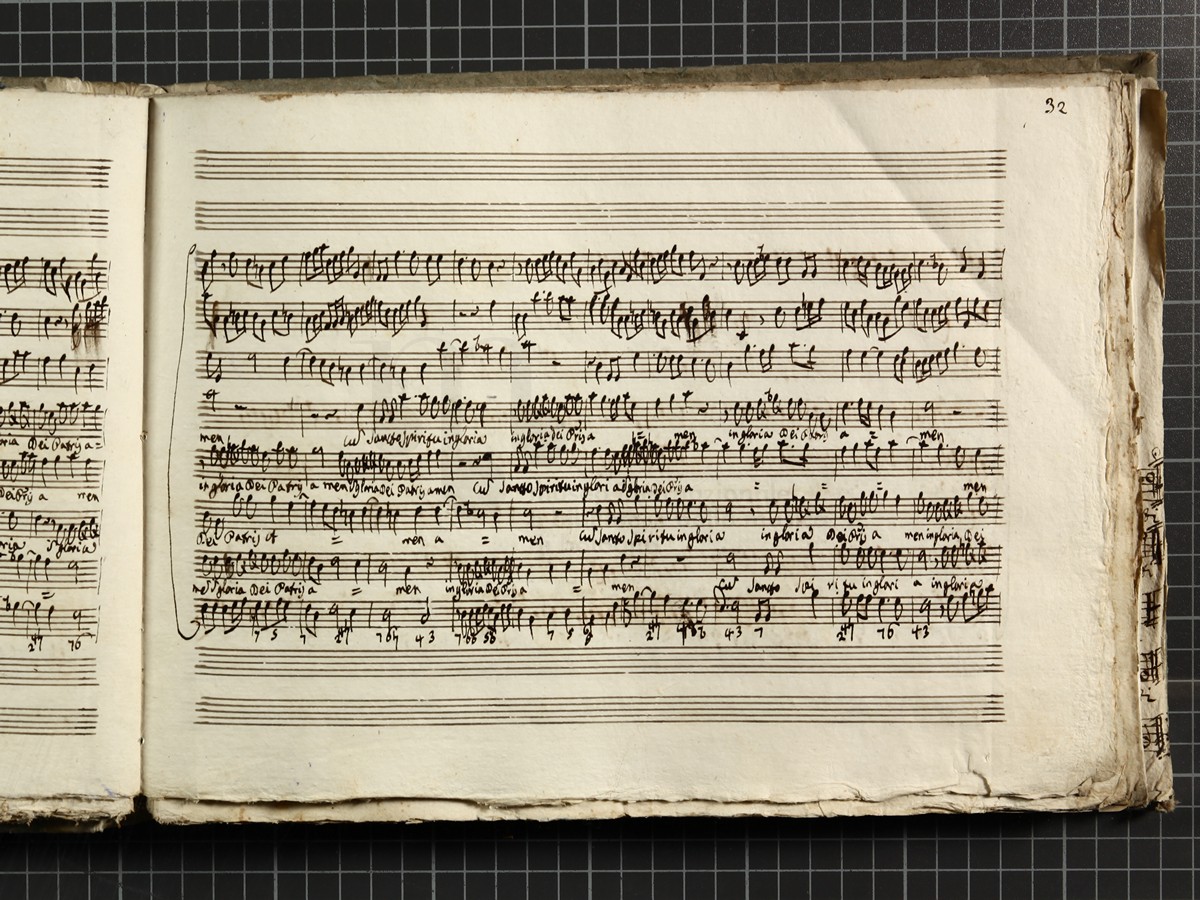 32
men Cū Sancto Spiritu in gloria in gloria Dei Prīs a = men in gloria Dei Patrīs a = men
in gloria Dei Patrīs a men gloria Dei Patrīs a men Cū Sancto Spiritu in gloria gloria Dei Prīs a = = = men
Dei Patrīs a = men a = men Cū Sancto Spiritu in gloria in gloria Dei Prīs a men in gloria Dei
gloria Dei Patrīs a = men in gloria Dei Prīs a = men Cū Sancto Spi ri tu in glori a in gloria
7 5 7 7 4 3 7 5 4 3 7 76 43
oria Dei Patrīs a =
Dei Prīs a men
gloria
=
76